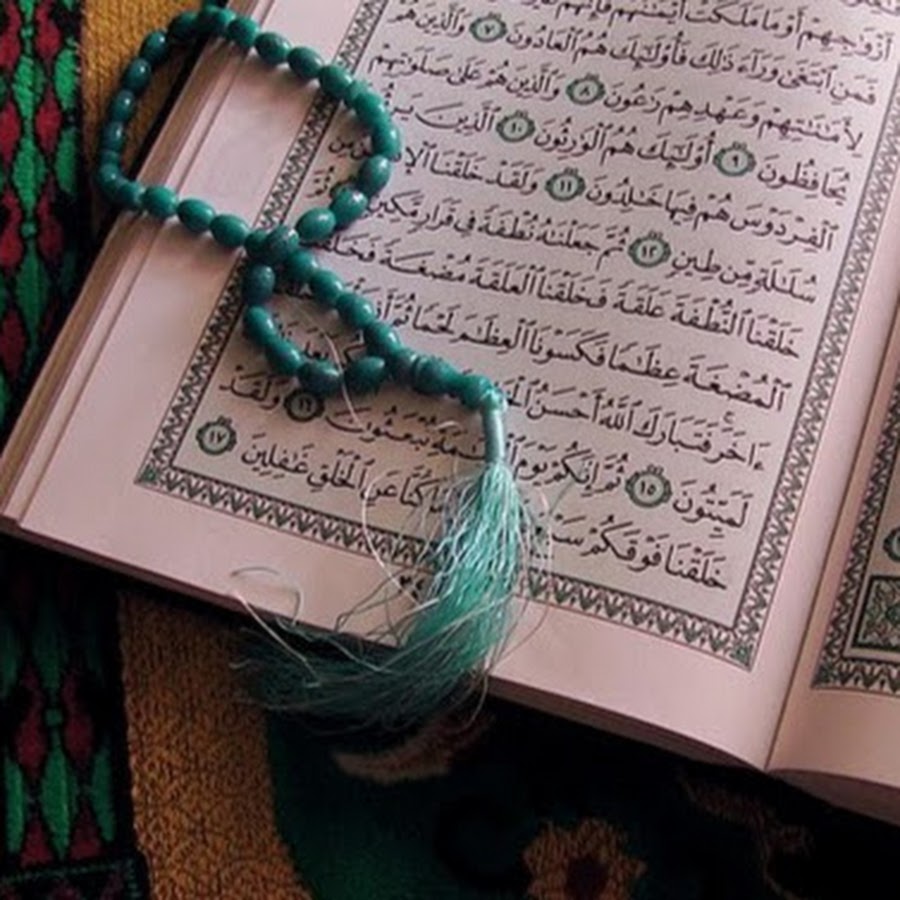 أَزْوَٰجِهِمْ أَوْ مَا مَلَكَتْ أَيْمَٰنُهُمْ فَإِنَّهُمْ غَيْرُ
فَمَنِ ٱبْتَغَىٰ وَرَآءَ ذَٰلِكَ فَأُو۟لَٰٓئِكَ هُمُ ٱلْعَادُونَ ٧ وَٱلَّذِينَ هُمْ
لِأَمَٰنَٰتِهِمْ وَعَهْدِهِمْ رَٰعُونَ ٨ وَٱلَّذِينَ هُمْ عَلَىٰ صَلَوَٰتِهِمْ
يُحَافِظُونَ ٩ أُو۟لَٰٓئِكَ هُمُ ٱلْوَٰرِثُونَ ١٠ ٱلَّذِينَ
ٱلْفِرْدَوْسَ هُمْ فِيهَا خَٰلِدُونَ ١١ وَلَقَدْ خَلَقْنَا مِن
سُلَٰلَةٍ مِّن طِينٍ ١٢ ثُمَّ جَعَلْنَٰهُ نُطْفَةً فِى قَرَارٍ مَّكِينٍ ثُمَّ
خَلَقْنَا ٱلنُّطْفَةَ عَلَقَةً فَخَلَقْنَا ٱلْعَلَقَةَ مُضْغَةً
ٱلْمُضْغَةَ عِظَٰمًا فَكَسَوْنَا ٱلْعِظَٰمَ لَحْمًا ثُمَّ
ءَاخَرَ فَتَبَارَكَ ٱللَّهُ أَحْسَنُ
لَمَيِّتُونَ ١٥ ثُمَّ إِنَّكُمْ يَوْمَ تُبْعَثُونَ ١٦ وَلَقَدْ
خَلَقْنَا فَوْقَكُمْ كُنَّا عَنِ ٱلْخَلْقِ غَٰفِلِينَ ١٧